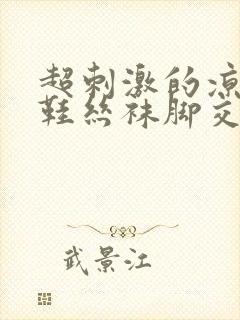 超刺激的凉
鞋丝袜脚交
武景江